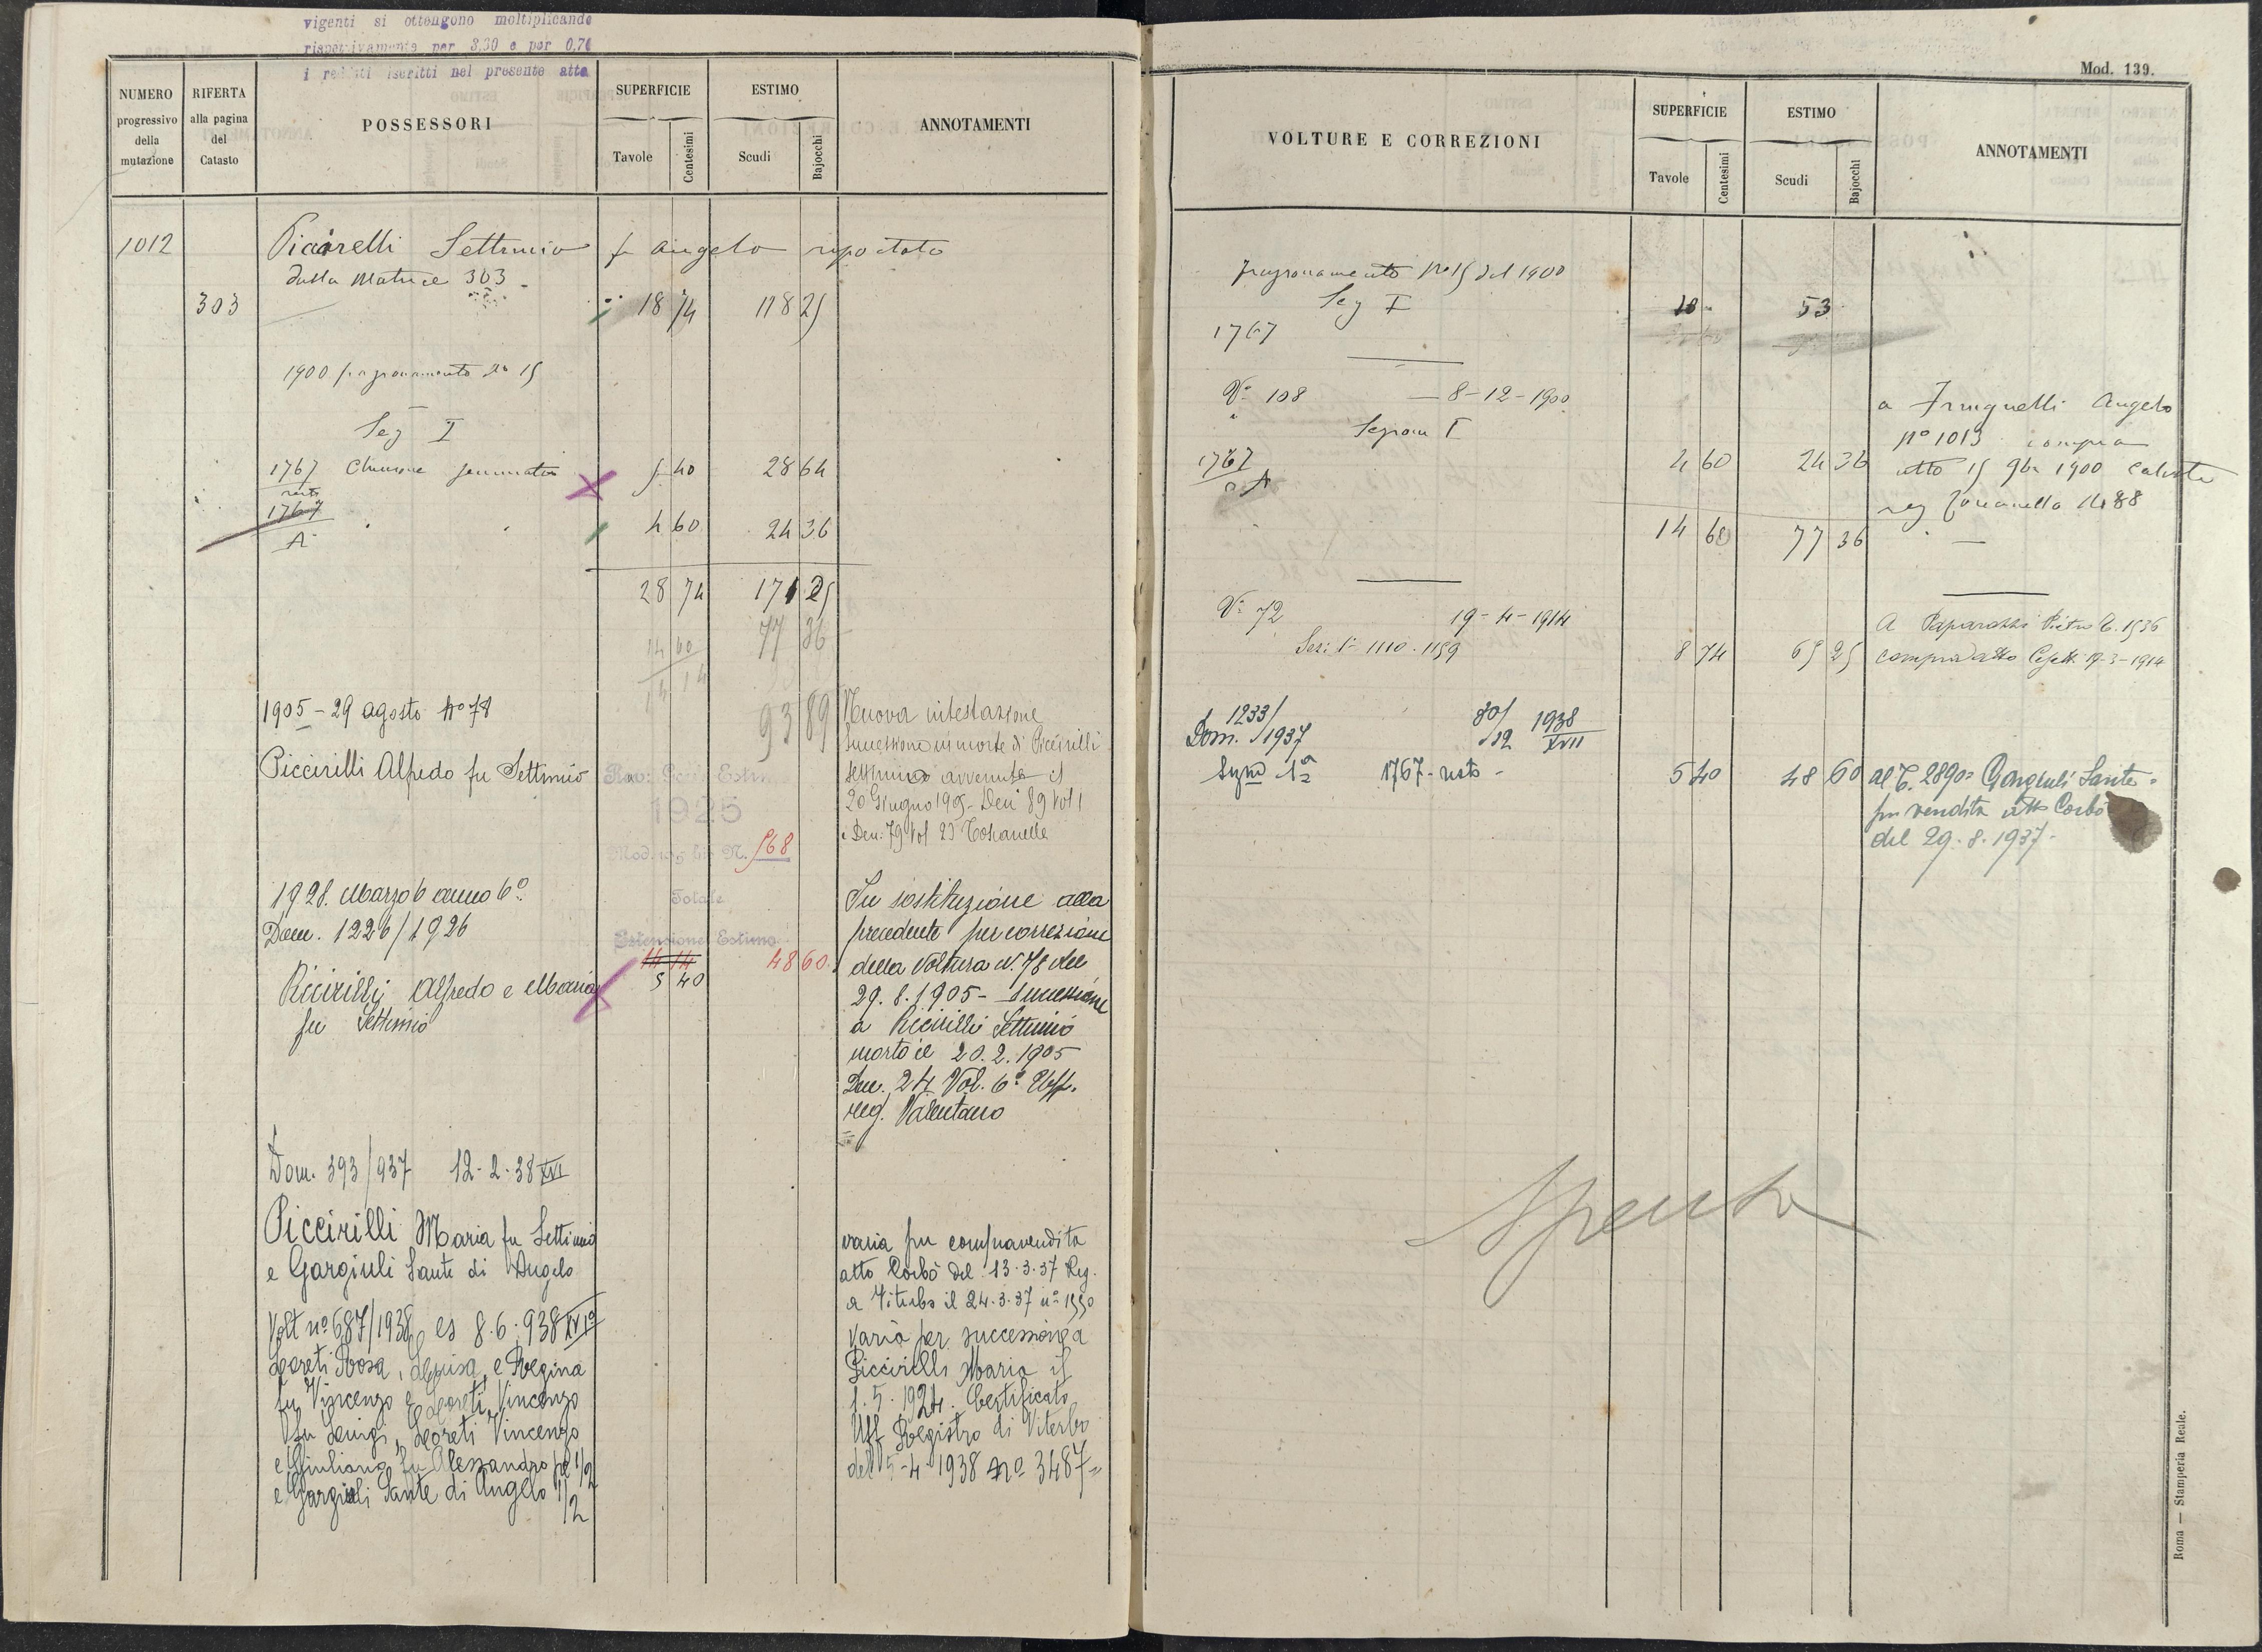 vigenti si ottengono moltiplicando
rispettivamente per 3,30 e per 0,70
i redditi iscritti nel presente atto
NUMERO progressivo della mutazione
RIFERTA alla pagina del Catasto
POSSESSORI
SUPERFICIE
Tavole Centesimi
ESTIMO
Scudi Bajocchi
ANNOTAMENTI
1012 Piccirelli Settimio fu Angelo riportato
dalla Matrice 303
303 18 74 118 25
1900 frazionamento No 15
Sez I
1767 Chiusone seminativo 5 40 28 64
resto
1767
A 4 60 24 36
28 74 171 25
14 60 77 36
14 14 93 89
1905 - 29 agosto No 78
Piccirilli Alfredo fu Settimio
Nuova intestazione
Successione in morte di Piccirilli
Settimio avvenuta il
20 Giugno 1905 - Den 89 Vol 1
e Den. 79 Vol 23 Toscanella
1925
Mod. N. 568
Totale
Estensione Estimo
14 14 48 60
5 40
1928. Marzo 6 anno 6º
Dom. 1226/1926
Piccirilli Alfredo e Maria
fu Settimio
In sostituzione alla
precedente per correzione
della Voltura N. 78 del
29. 8. 1905 - successione
a Piccirilli Settimio
morto il 20. 2. 1905
Den. 24 Vol. 6º Uff.
reg. Valentano
Dom. 393/937 12-2-38 XVI
Piccirilli Maria fu Settimio
e Gargiuli Sante di Angelo
varia per compravendita
atto Corbò del 13.3.37 Reg.
a Viterbo il 24.3.37 nº 1550
Volt nº 687/1938 es 8.6.938 XVIº
Loreti Rosa, Luisa, e Regina
fu Vincenzo e Loreti Vincenzo
fu Luigi, Loreti Vincenzo
e Giuliana fu Alessandro per 1/2
e Gargiuli Sante di Angelo 1/2
Varia per successione a
Piccirilli Maria il
1.5.1924. Certificato
Uff Registro di Viterbo
del 5-4-1938 nº 3487
Mod. 139.
VOLTURE E CORREZIONI
SUPERFICIE
Tavole Centesimi
ESTIMO
Scudi Bajocchi
ANNOTAMENTI
frazionamento No 15 del 1900
Sez I
1767 10 - 53
Vª 108 - 8-12-1900
Sezione I
1767
A 4 60 24 36
14 60 77 36
a Frugnelli Angelo
Nº 1013 compra
atto 15 9bre 1900
reg Toscanella Nº 88
Vª 72 19-4-1914
Sez: 1ª 1110. 1159 8 74 65 25
A Paparozzi Pietro C. 1536
compra atto 19-3-1914
Dom. 1233/1937 30/12 1938 XVII
Sezne 1ª 1767 - resto - 5 40 48 60
al C. 2890 = Gargiuli Sante =
per vendita atto Corbò
del 29.8.1937 -
Spenta
Roma — Stamperia Reale.